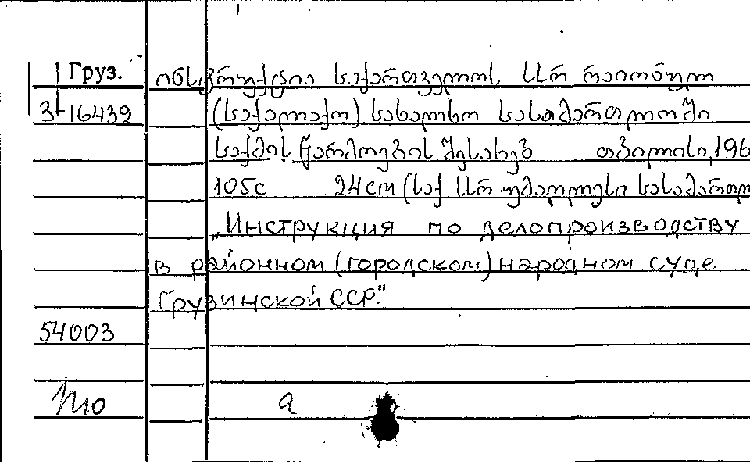 Груз.
3-16439
ინსტრუქცია საქართველოს სსრ რაიონულ
(საქალაქო) სახალხო სასამართლოში
საქმის წარმოების შესახებ თბილისი, 196
105с 24см (საქ სსრ უმაღლესი სასამართლო
„Инструкция по делопроизводству
в районном (городском) народном суде
Грузинской ССР."
54003